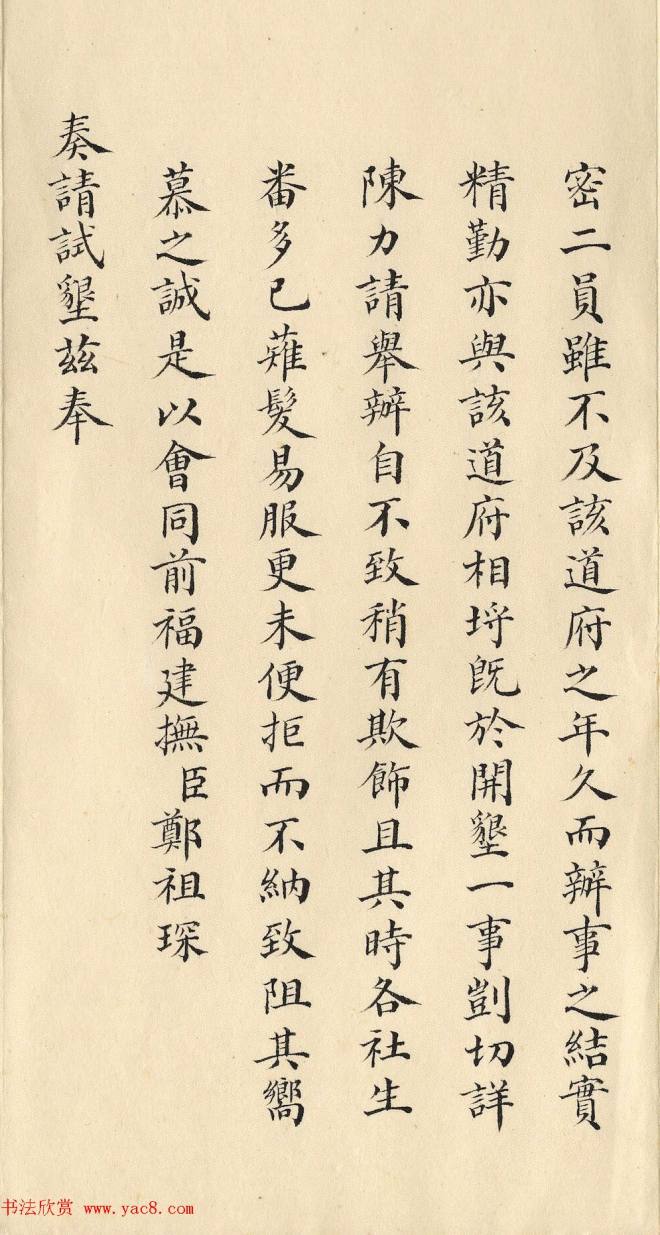 密二員雖不及該道府之年久而辦事之結實
精勤亦與該道府相埒既於開墾一事剴切詳
陳力請舉辦自不致稍有欺飾且其時各社生
番多已薙髮易服更未便拒而不納致阻其嚮
慕之誠是以會同前福建撫臣鄭祖琛
奏請試墾茲奉
书法欣赏 www.yac8.com